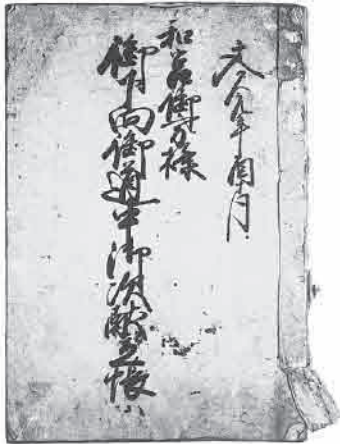 文久元年酉月
和宮御方様
御下向御道中御次献立帳